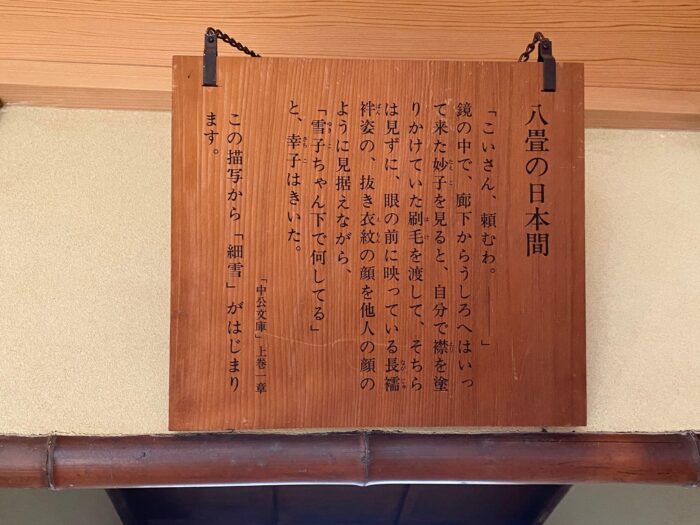 八畳の日本間
「こいさん、頼むわ。――」
鏡の中で、廊下からうしろへはいっ
て来た妙子を見ると、自分で襟を塗
りかけていた刷毛を渡して、そちら
は見ずに、眼の前に映っている長襦
袢姿の、抜き衣紋の顔を他人の顔の
ように見据えながら、
「雪子ちゃん下で何してる」
と、幸子はきいた。
「中公文庫」上巻一章
この描写から「細雪」がはじまり
ます。